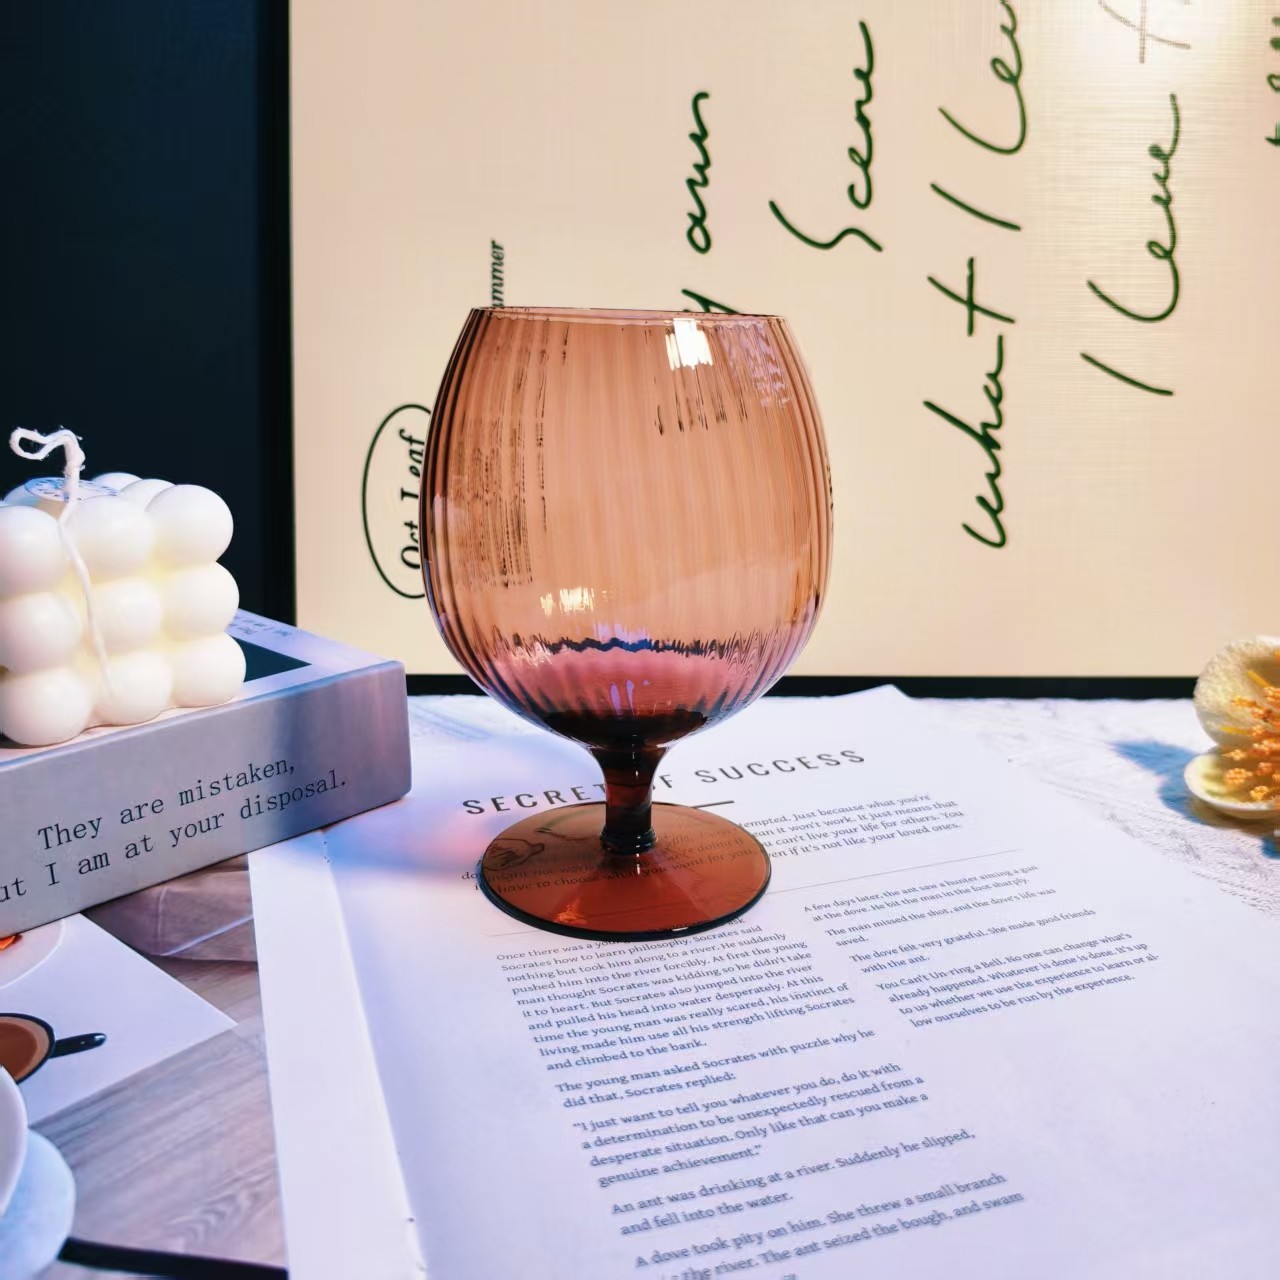 am
Scene
what I Leu
I Leue
ummer
Oct Leaf
They are mistaken,
ut I am at your disposal.
SECRET OF SUCCESS
tempted. Just because what you're
it won't work. It just means that
can't live your life for others. You
have to choose what you want for you, even if it's not like your loved ones.
Once there was a
ask
Socrates how to learn philosophy. Socrates said
nothing but took him along to a river. He suddenly
pushed him into the river forcibly. At first the young
man thought Socrates was kidding, so he didn't take
it to heart. But Socrates also jumped into the river
and pulled his head into water desperately. At this
time the young man was really scared, his instinct of
living made him use all his strength lifting Socrates
and climbed to the bank.
The young man asked Socrates with puzzle why he
did that, Socrates replied:
"I just want to tell you whatever you do, do it with
a determination to be unexpectedly rescued from a
desperate situation. Only like that can you make a
genuine achievement."
An ant was drinking at a river. Suddenly he slipped,
and fell into the water.
A dove took pity on him. She threw a small branch
the river. The ant seized the bough, and swam
A few days later, the ant saw a hunter aiming a gun
at the dove. He bit the man in the foot sharply.
The man missed the shot, and the dove's life was
saved.
The dove felt very grateful. She made good friends
with the ant.
You Can't Un-ring a Bell. No one can change what's
already happened. Whatever is done is done. It's up
to us whether we use the experience to learn or al-
low ourselves to be run by the experience.